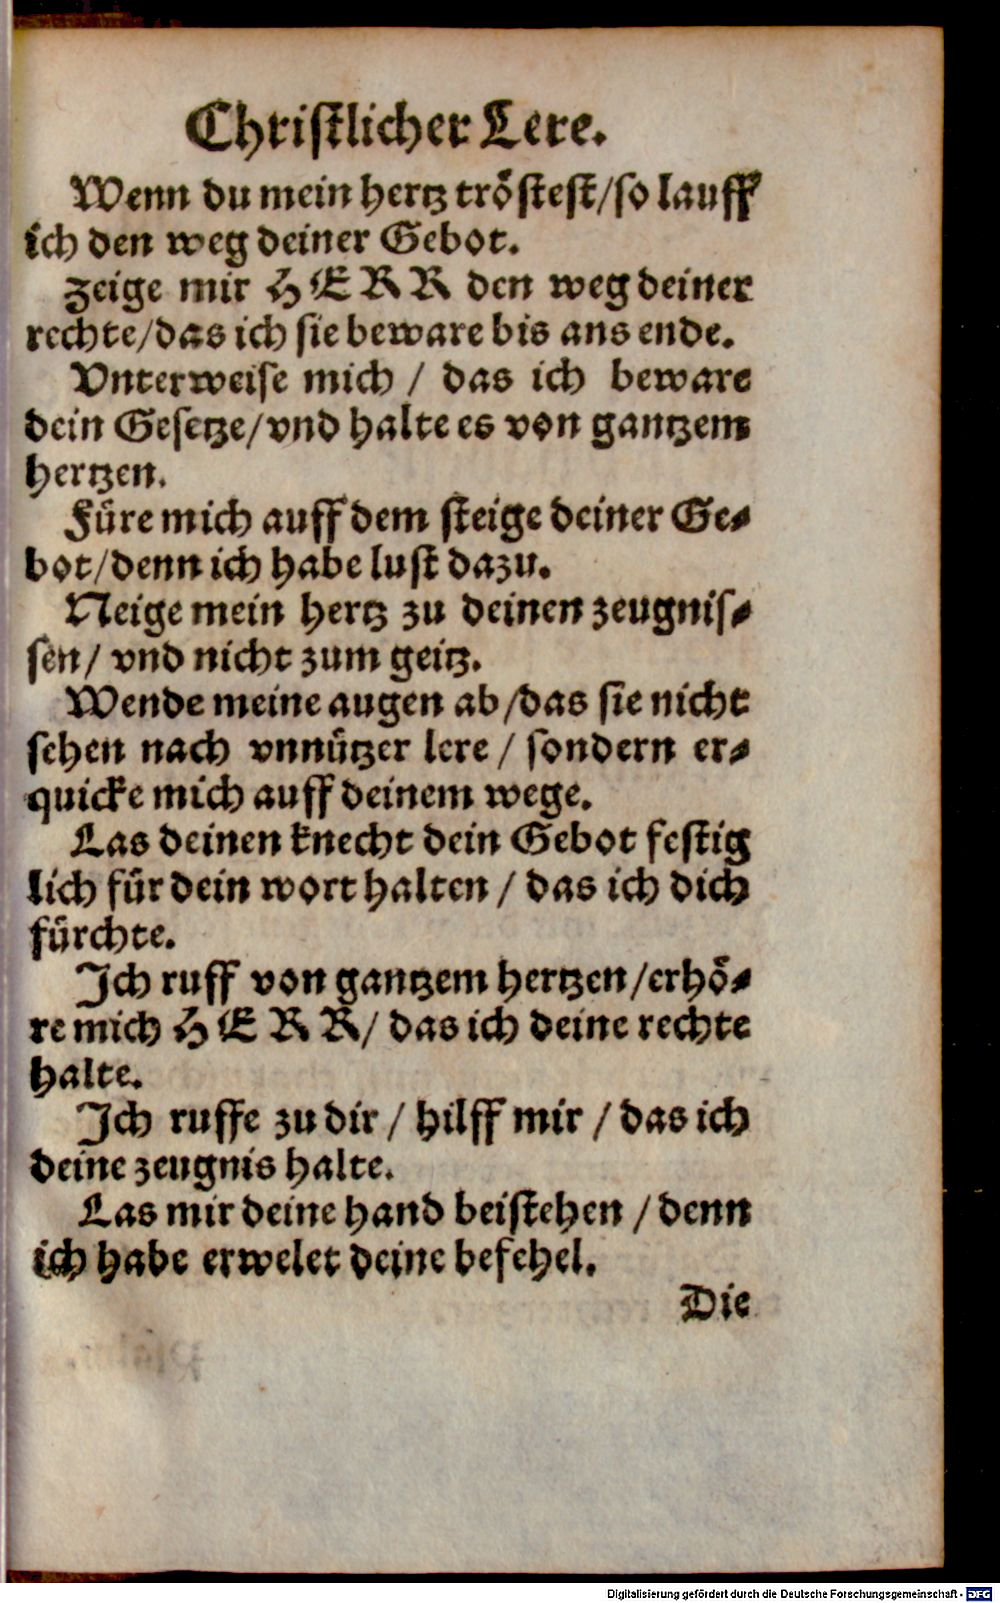 Christlicher Lere.
Wenn du mein hertz tröstest/so lauff
ich den weg deiner Gebot.
Zeige mir HERR den weg deiner
rechte/das ich sie beware bis ans ende.
Vnterweise mich / das ich beware
dein Gesetze/vnd halte es von gantzem
hertzen.
Füre mich auff dem steige deiner Ge-
bot/denn ich habe lust dazu.
Neige mein hertz zu deinen zeugnis-
sen/ vnd nicht zum geitz.
Wende meine augen ab/das sie nicht
sehen nach vnnützer lere / sondern er-
quicke mich auff deinem wege.
Las deinen knecht dein Gebot festig
lich für dein wort halten / das ich dich
fürchte.
Ich ruff von gantzem hertzen/erhö-
re mich HERR/ das ich deine rechte
halte.
Ich ruffe zu dir / hilff mir / das ich
deine zeugnis halte.
Las mir deine hand beistehen / denn
ich habe erwelet deine befehel.
Die
Digitalisierung gefördert durch die Deutsche Forschungsgemeinschaft - DFG